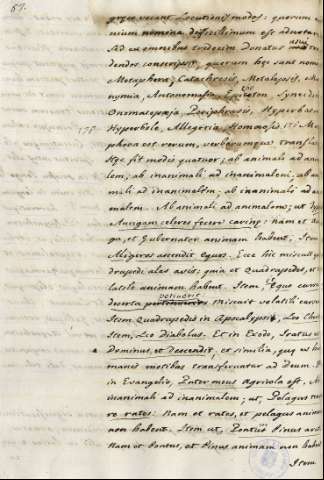 67.
vocant Locutionis modos: quorum
nomina difficilimum est adnotare
Ad ex omnibus tredecim Donatus
dendos conscripsit, quorum haec sunt nomi
Metaphora, Catachresis, Metalepsis, Me
nymia, Antonomasia, Epiteton, Synecdo
Onomatopeja, Periphrasis, Hyperbato
Hyperbole, Allegoria, Homaosis. Me
phora est rerum, verborumque transla
Haec fit modis quatuor, ab animali ad
lem, ab inanimali ad inanimalem, ab
mali ad inanimalem; ab inanimali ad
malem. Ab animali ad animalem; ut
Aurigam celeres fecere carinae: nam et
ga, et Gubernator animam habent. Item
Aligeros ascendit equos. Ecce hic miscuit
drupedi alas avis; quia et Quadrupedes, et
latile animam habent. Item, Equo
miscuit volatili
Item Quadrupedes in Apocalypsi, Leo Chri
Item, Leo Diabolus. Et in Exodo, Iratus
Dominus, et descendit, et similia, quae
manis motibus transferuntur ad Deum. E
in Evangelio, Pater meus Agricola est. A
inanimali ad inanimalem; ut, Pelagus
ro rates. Nam et rates, et pelagus anima
non habent. Item ut, Pontus Pinus
Nam et Pontus, et Pinus animam non hab
Item